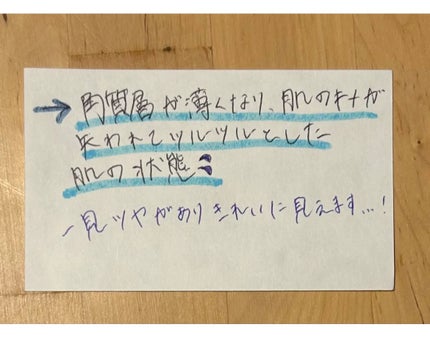 → 角質層が薄くなり、肌のキメが
失われてツルツルとした
肌の状態
一見ツヤがありきれいに見えます…!